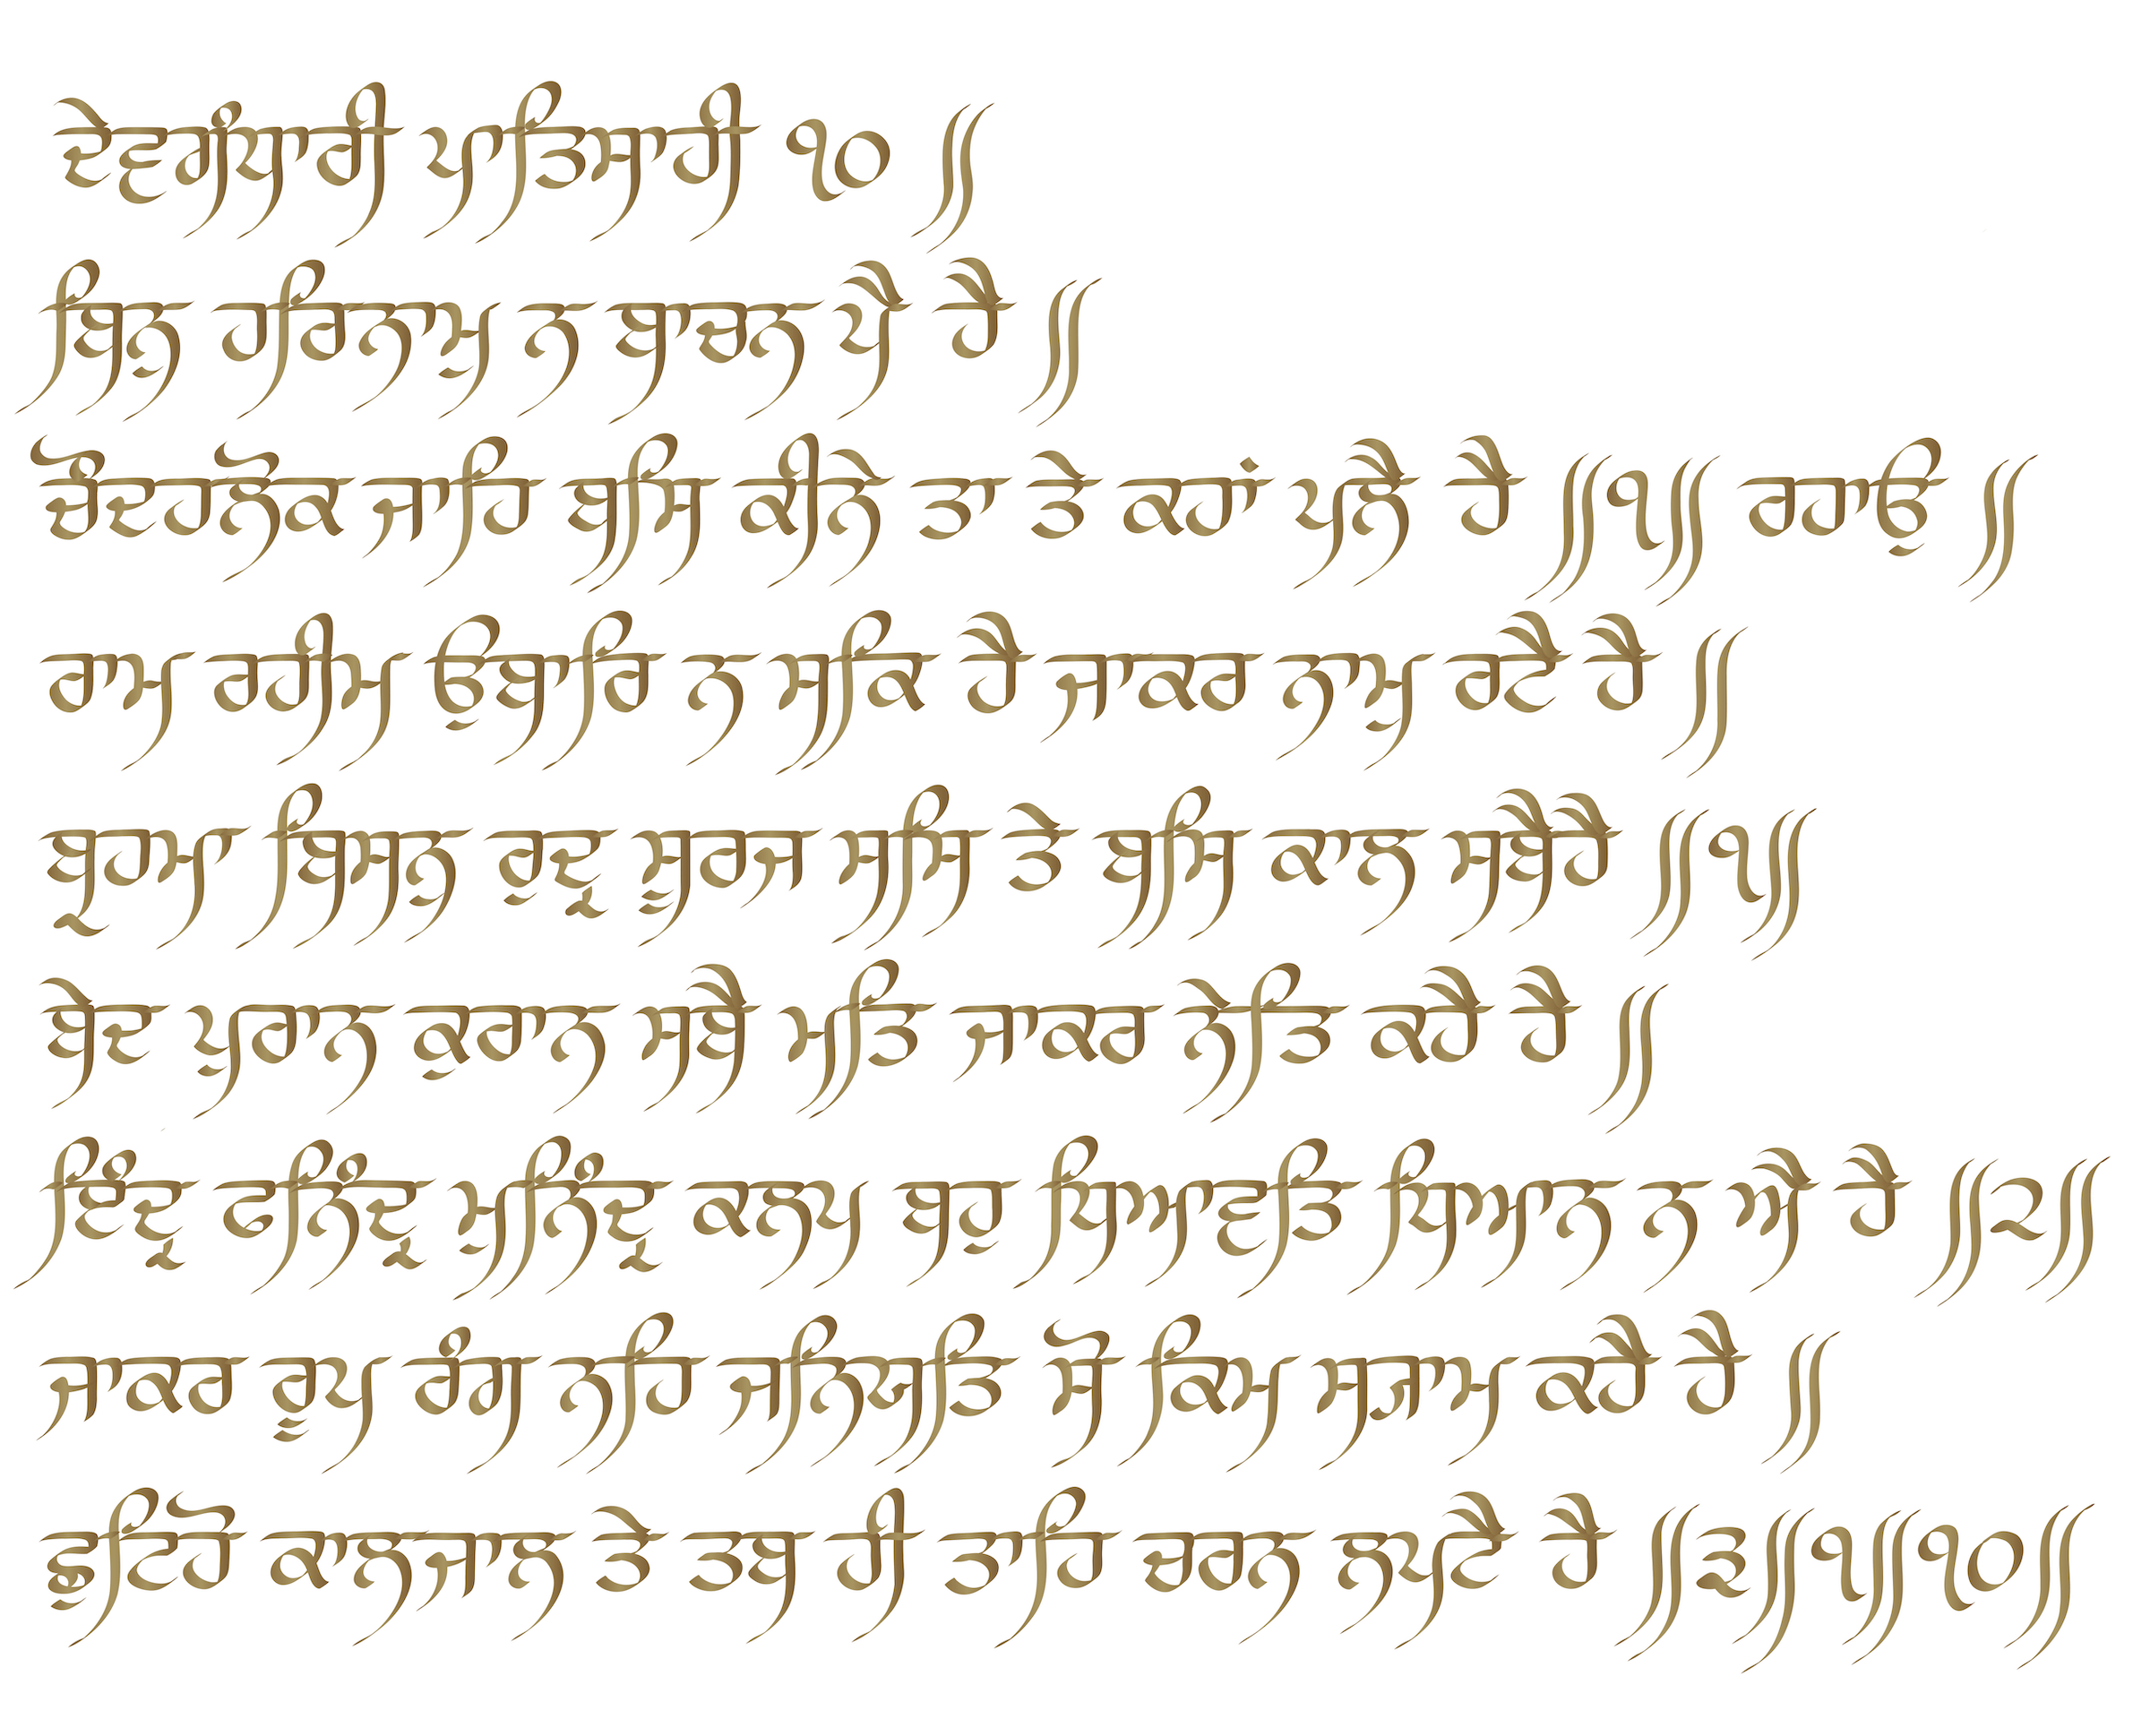 ਦੇਵਗੰਧਾਰੀ ਪਾਤਿਸਾਹੀ ੧੦ ॥
ਬਿਨੁ ਹਰਿਨਾਮੁ ਨ ਬਾਚਨ ਪੈ ਹੈ ॥
ਚੌਂਦਹਲੋਕ ਜਾਹਿ ਬਸਿ ਕੀਨੇ ਤਾ ਤੇ ਕਹਾਂ ਪਲੈ ਹੈ ॥੧॥ ਰਹਾਉ ॥
ਰਾਮ ਰਹੀਮ ਉਬਾਰਿ ਨ ਸਕਿ ਹੈ ਜਾਕਰ ਨਾਮੁ ਰਟੈ ਹੈ ॥
ਬ੍ਰਹਮਾ ਬਿਸਨ ਰੁਦ੍ਰ ਸੂਰਜ ਸਸਿ ਤੇ ਬਸਿ ਕਾਲ ਸਬੈਹੈ ॥੧॥
ਬੇਦ ਪੁਰਾਨ ਕੁਰਾਨ ਸਬੈ ਮਤਿ ਜਾਕਰ ਨੇਤਿ ਕਹੈ ਹੈ ॥
ਇੰਦ੍ਰ ਫਨਿੰਦ੍ਰ ਮੁਨਿੰਦ੍ਰ ਕਲਪ ਬਹੁ ਧਿਆਵਤਿ ਧਿਆਨ ਨ ਐ ਹੈ ॥੨॥
ਜਾਕਰ ਰੂਪ ਰੰਗ ਨਹਿ ਜਨਿਯਤਿ ਸੋ ਕਿਮ ਸ੍ਯਾਮ ਕਹੈ ਹੈ ॥
ਛੁਟਿਹੋ ਕਾਲਜਾਲ ਤੇ ਤਬ ਹੀ ਤਾਹਿ ਚਰਨ ਲਪਟੈ ਹੈ ॥੩॥੧॥੧੦॥